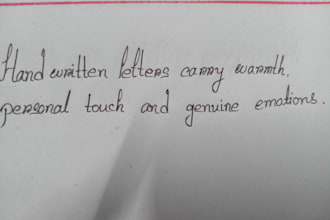 Hand written letters carry warmth,
personal touch and genuine emotions.